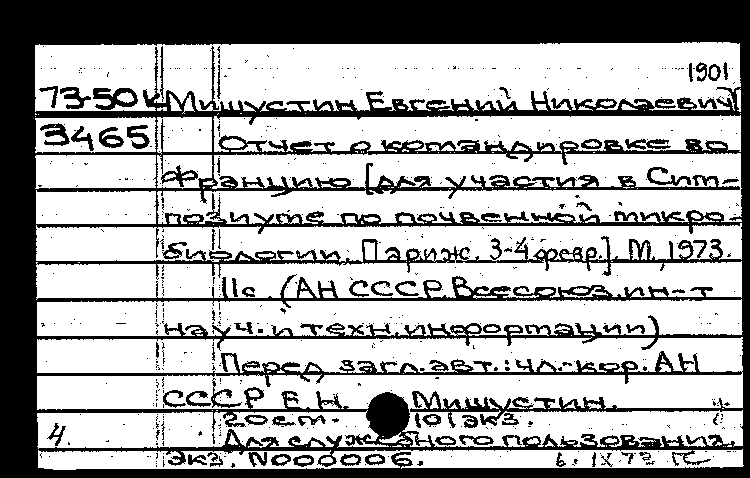 1901
73-50к Мишустин Евгений Николаевич
3465 Отчет о командировке во
Францию [для участия в Сим-
позиуме по почвенной микро-
биологии. Париж. 3-4 февр.]. М., 1973.
11с. (АН СССР. Всесоюз. ин-т
науч. и техн. информации)
Перед загл. авт.: чл.-кор. АН
СССР Е.Н. Мишустин.
20 см. 101 экз.
4. Для служебного пользования.
экз. N000006. 6.IX 73